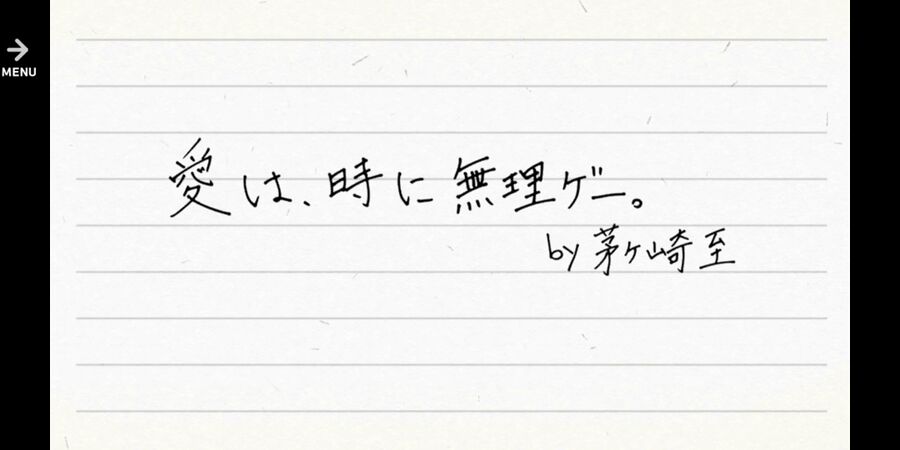 MENU
愛は、時に無理ゲー。
by 茅ヶ崎 至